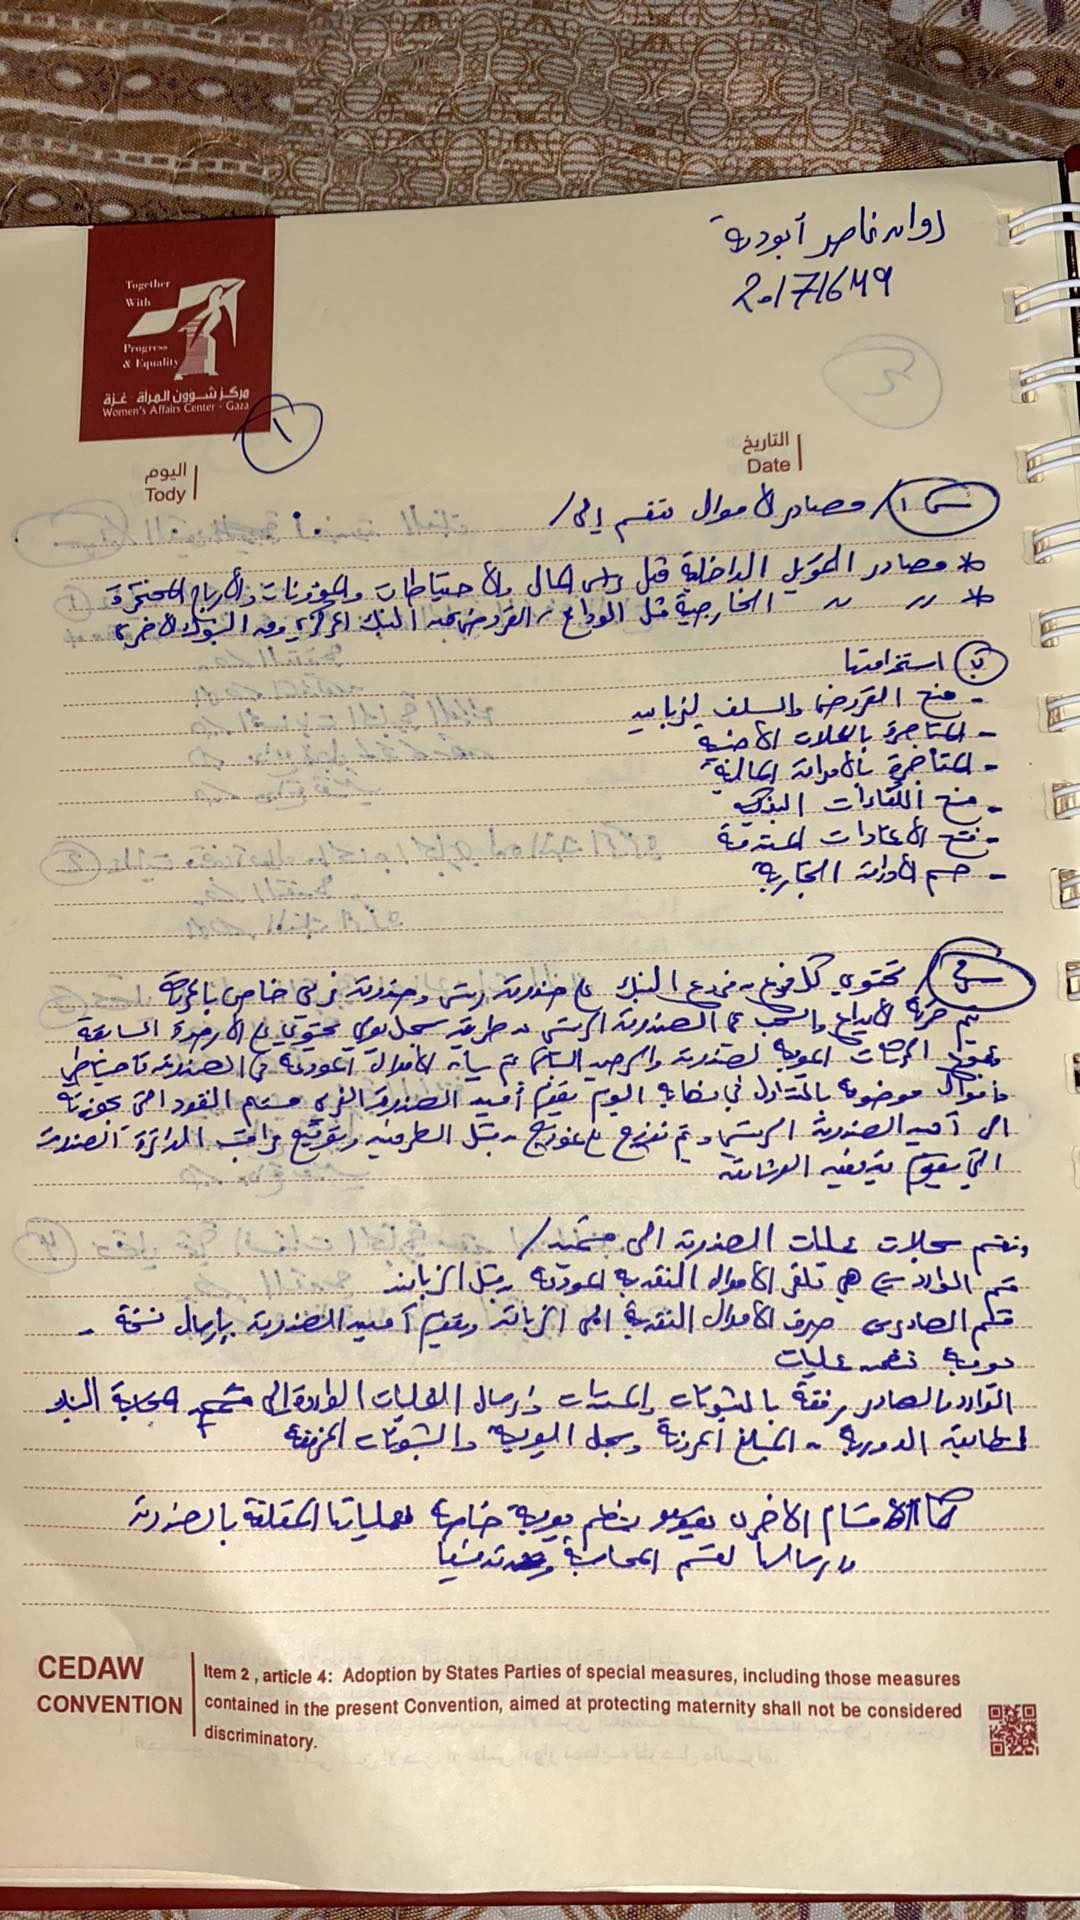 روان ناصر أبودية
20171649
Together
With
Progress
& Equality
مركز شؤون المرأة - غزة
Women's Affairs Center - Gaza
١
التاريخ
Date
اليوم
Tody
س١/ مصادر الأموال تنقسم إلى/
* مصادر التمويل الداخلية مثل راس المال والاحتياطات والمؤونات والأرباح المحتجزة
* " " الخارجية مثل الودائع، القروض من البنك المركزي ومن البنوك الأخرى
ب) استخدامتها
- منح القروض والسلف لزبائن
- المتاجرة بالعملات الأجنبية
- المتاجرة بالأوراق المالية
- منح الكفالات البنكية
- فتح الاعتمادات المستندية
- خصم الأوراق التجارية
س٢ تحتوي كل فرع من فروع البنك على صندوق رئيسي وصندوق فرعي خاص بالحركة
يتم حركة الايداع والسحب على الصندوق الرئيسي عن طريق سجل يومي يحتوي على الأرصدة السابقة
الحركات اليومية لصندوق والرصيد
وأموال موضوعة بالتداول في نهاية اليوم يقوم أمين الصندوق الفرعي بتسليم النقود التي بحوزته
الى أمين الصندوق الرئيسي ويتم نموذج من قبل الطرفين وتوقيع مراقب الدائرة الصندوق
التي يقوم
وتقسم سجلات عمليات الصندوق الى قسمين/
قسم الوارد هي تلقي الأموال النقدية المودعة من قبل الزبائن
قسم الصادر صرف الأموال النقدية الى الزبائن ويقوم أمين الصندوق بإرسال نسخة
يومية تضمن عمليات
الوارد والصادر مرفقة بالثبوتات والمستندات وارسال العمليات الواردة الى قسم المحاسبة
لمطابقة الدورية - المبلغ وسجل اليومية والثبوتات المرفقة
كما الأقسام الأخرى يقومو بتنظيم يومية خاصة بعملياتها المتعلقة بالصندوق
وارسالها لقسم المحاسبة
CEDAW
CONVENTION
Item 2 , article 4: Adoption by States Parties of special measures, including those measures
contained in the present Convention, aimed at protecting maternity shall not be considered
discriminatory.